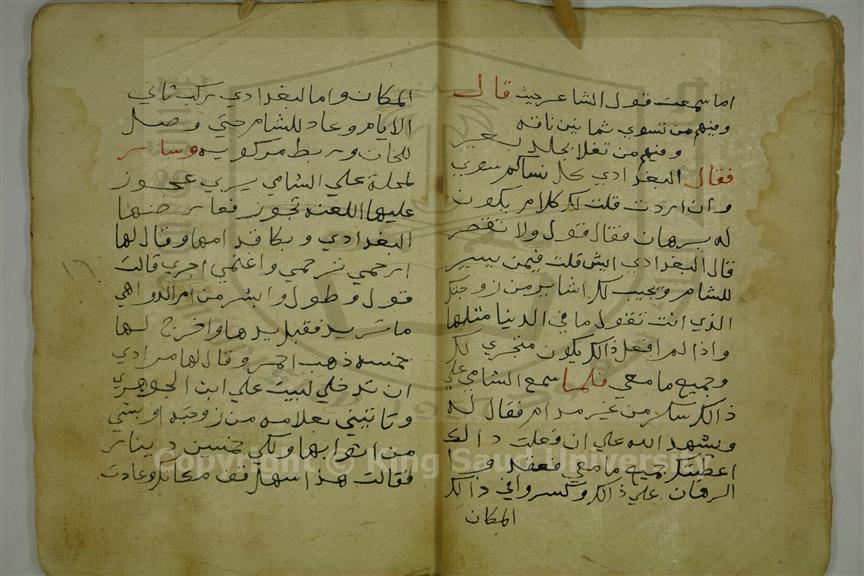 اما سمعت قول الشاعر حيث قال
ومنهم من تسوي ثمانين ناقه
ومنهم من تغلا بجلد بعير
فقال البغدادي كل نساكم سوي
وان اردت قلت لك كلام يكون
له برهان فقال قول ولا تقصر
قال البغدادي ايش قلت فيمن يسير
للشام ويجيب لك اشاير من زوجتك
الذي انت تقول ما في الدنيا مثلها
واذا لم افعل ذالك يكون متجري لك
وجميع ما معي فلما سمع الشامي علي
ذالك سكر من غير مدام فقال له
ويشهد الله علي ان فعلت ذالك
اعطيتك جميع ما معي فعقدوا
الرهان علي ذالك وكسروا في ذالك
المكان
المكان واما البغدادي ركب ثاني
الايام وعاد للشام حتي وصل
للخان وربط مركوبه وسار
لمحلة علي الشامي يري عجوز
عليها اللعنه تجوز فعارضها
البغدادي وبكا قدامها وقال لها
ارحمي ترحمي واغنمي اجري قالت
قول وطول وابشر من ام الدواهي
ما تريد فقبل يدها واخرج لها
خمسه ذهب احمر وقال لها مرادي
ان تدخلي لبيت علي ابن الجوهري
وتاتيني بعلامه من زوجته او بشي
من اثوابها ولكي خمسين دينار
فقالت هذا سهل قف مكانك وعادت
Copyright © King Saud University